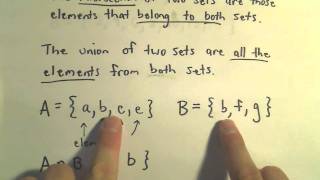 of two sets are those
elements that belong to both sets.
The union of two sets are all the
elements from both sets.
A = { a, b, c, e } B = { b, f, g }
b }